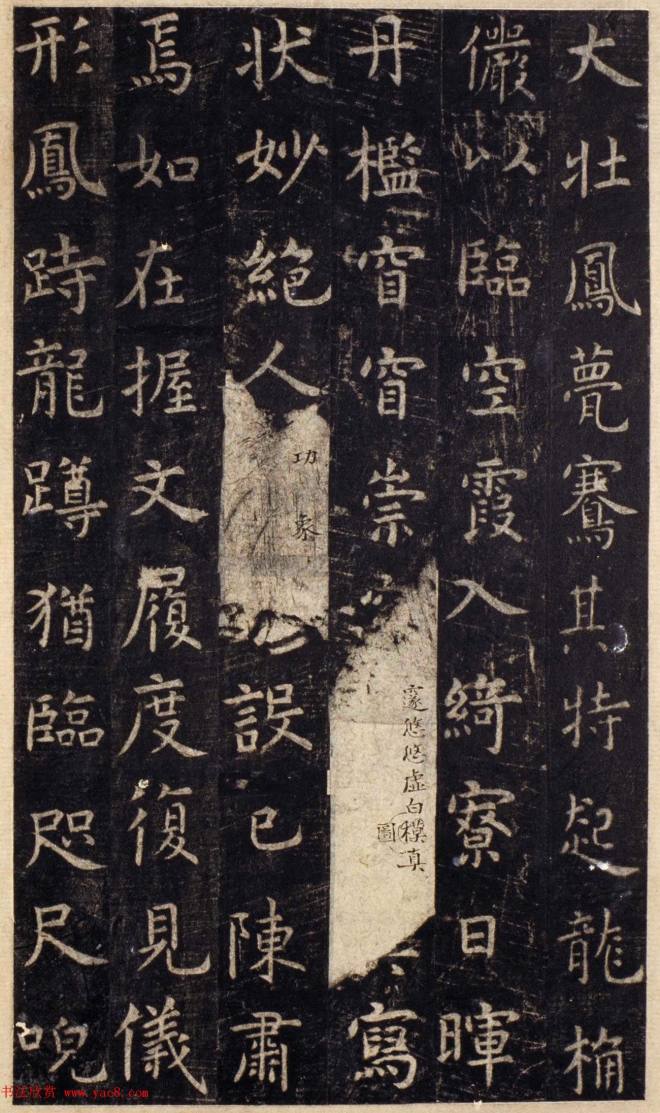 大壯鳳甍騫其特起龍桷
儼以臨空霞入綺寮日暉
丹檻窅窅崇
邃悠悠虛白模真
圖
寫
狀妙絕人
功 象
設已陳肅
焉如在握文履度復見儀
形鳳跱龍蹲猶臨咫尺唲
书法欣赏 www.yac8.com